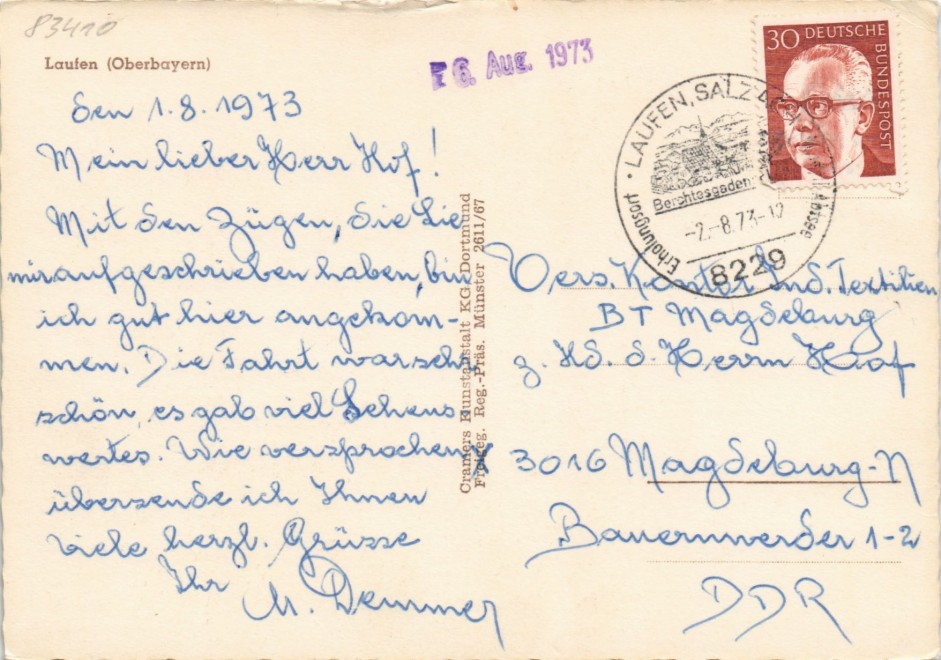 83410
Laufen (Oberbayern)
E 6. Aug. 1973
30 DEUTSCHE
BUNDESPOST
LAUFEN, SALZ
Berchtesgaden
-2.-8.73-12
Erholungsort
Abtsee
8229
den 1.8.1973
Mein lieber Herr Hof!
Mit den Zügen, die Sie
mir aufgeschrieben haben, bin
ich gut hier angekom-
men. Die Fahrt war sehr
schön, es gab viel Sehens
wertes. Wie versprochen
übersende ich Ihnen
viele herzl. Grüsse
Ihr
M. Demmer
Cramers Kunstanstalt KG. Dortmund
Freigeg. Reg.-Präs. Münster 2611/67
Vers. Kontor Ind. Textilien
BT Magdeburg
z. Hd. d. Herrn Hof
3016 Magdeburg-N
Bauernwerder 1-2
DDR